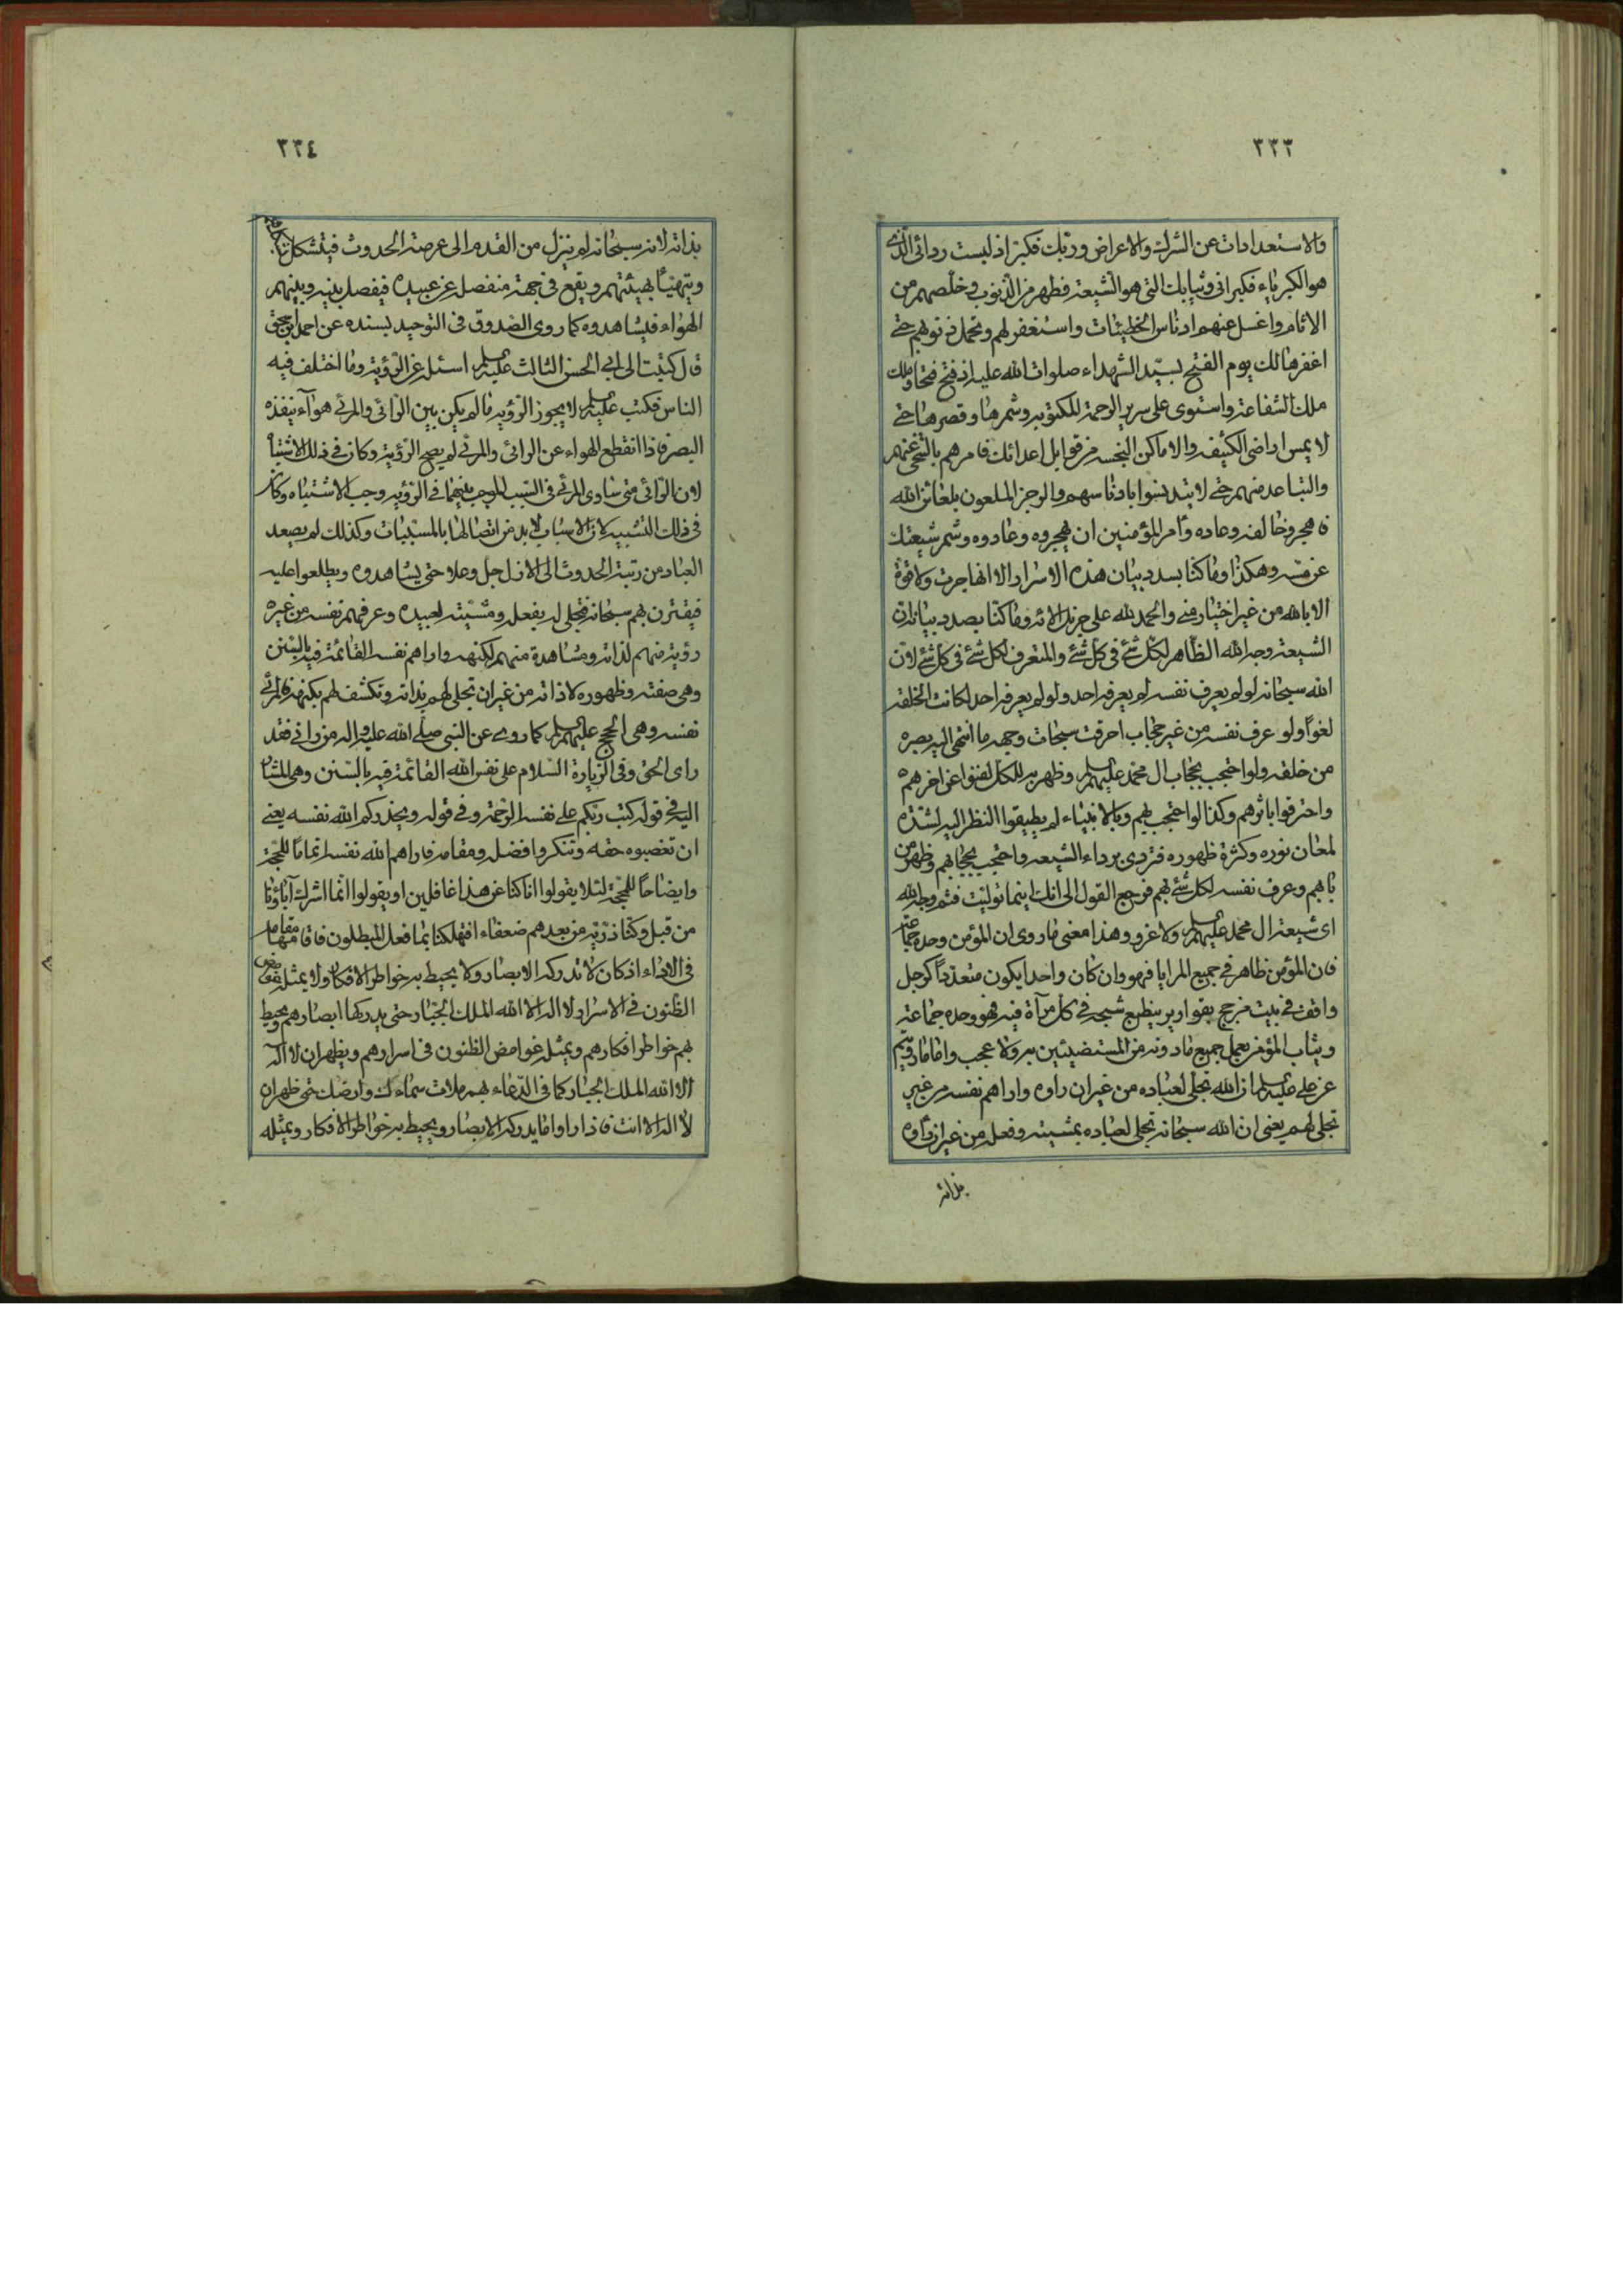 ٣٣٣
والاستعدادات عن الشرك والاعراض وربك فكبر اذ لبست ردائى الذى
هو الكبرياء فكبرانى وثيابك التى هو الشيعة فطهر من الذنوب وخلصهم من
الاثام واغسل عنهم ادناس الخطيئات واستغفر لهم وتحمل ذنوبهم حتى
اغفرها لك يوم الفتح بسيد الشهداء صلوات الله عليه اذ فتح فتحا وملك
ملك الشفاعة واستوى على سرير الرحمة المكتوبة وشمرها وقصرها حتى
لا يمس اراضى الكثيفه والاماكن النجسه من قوابل اعدائك فامرهم بالتنحى عنهم
والتباعد منهم حتى لا يتدنسوا بادناسهم والرجز الملعون بلعائن الله
فاهجر وخالفه وعاده وأمر المؤمنين ان يهجروه وعادوه وشمر شيعتك
عن مسه وهكذا وما كنا بسدد بيان هذه الاسرار الا انها جرت ولا قوة
الا بالله من غير اختيار منى والحمد لله على جزيل الائه وما كنا بصدد بيانه ان
الشيعة وجه الله الظاهر لكل شئ فى كل شئ والمتعرف لكل شئ فى كل شئ لان
الله سبحانه لو لم يعرف نفسه لم يعرفه احد ولو لم يعرفه احد لكانت الخلقة
لغوا ولو عرف نفسه من غير حجاب احرقت سبحات وجهه ما انتهى اليه بصره
من خلقه ولو احتجب بحجاب ال محمد عليهم السلم وظهر به للكل لفنوا عن اخرهم
واحترقوا باثرهم وكذا لو احتجب بهم وبالانبياء لم يطيقوا النظر اليه لشدة
لمعان نوره وكثرة ظهوره فتردى برداء الشيعه واحتجب بحجابهم وظهر من
بابهم وعرف نفسه لكل شئ بهم فرجع القول الى انك اينما توليت فثم وجه الله
اى شيعة ال محمد عليهم السلم ولا غرو وهذا معنى ما روى ان المؤمن وحده جماعة
فان المؤمن ظاهر فى جميع المرايا فهو وان كان واحدا يكون متعددا كرجل
واقف فى بيت مزجج بقوارير ينطبع شبحه فى كل مرآة فيه فهو وحده جماعة
ويثاب المؤمن بعمل جميع مادونه من المستضيئين به ولا عجب واما ما رويتم
عن على عليه السلم ان الله تجلى لعباده من غير ان راوه واراهم نفسه من غير
تجلى لهم يعنى ان الله سبحانه تجلى لعباده بمشيته وفعله من غير ان راوه
بذاته
٣٣٤
بذاته لانه سبحانه لم ينزل من القدم الى عرصة الحدوث فيتشكل
ويتهيأ بهيئتهم ويقع فى جهة منفصل عن عبيده فيفصل بينه وبينهم
الهواء فيشاهدوه كما روى الصدوق فى التوحيد بسنده عن احمد بن اسحق
قال كتبت الى ابى الحسن الثالث عليه السلم اسئله عن الرؤية وما اختلف فيه
الناس فكتب عليه السلم لا يجوز الرؤية ما لم يكن بين الرائى والمرئى هوآء ينفذه
البصر فاذا انقطع الهواء عن الرائى والمرئى لم يصح الرؤية وكان فى ذلك الاشتباه
لان الرائى متى ساوى المرئى فى السبب الموجب بينهما فى الرؤية وجب الاشتباه وكان
فى ذلك التشبيه لان الاسباب لابد من اتصالها بالمسببات وكذلك لم يصعد
العباد من رتبة الحدوث الى الازل جل وعلا حتى يشاهدوه ويطلعوا عليه
فيقترن بهم سبحانه فتجلى له بفعله ومشيته لعبيده وعرفهم نفسه من غير
رؤية منهم لذاته ومشاهدة منهم لكنهه واراهم نفسه القائمة فيه بالسنن
وهى صفته وظهوره لا ذاته من غير ان تجلى لهم بذاته وتكشف لهم بكنهه فالمرئى
نفسه وهى الحجج عليهم السلم كما روى عن النبى صلى الله عليه واله من رانى فقد
راى الحق وفى الزيارة السلام على نفس الله القائمة فيه بالسنن وهى المشار
اليه فى قوله كتب ربكم على نفسه الرحمة وفى قوله ويحذركم الله نفسه يعنى
ان تغصبوه حقه وتنكروا فضله ومقامه فاراهم الله نفسه اتماما للحجة
وايضاحا للمحجة لئلا يقولوا انا كنا عن هذا غافلين او يقولوا انما اشرك آباؤنا
من قبل وكنا ذرية من بعدهم ضعفاء افتهلكنا بما فعل المبطلون فاقامها مقامه
فى الاداء اذ كان لا تدركه الابصار ولا يحيط به خواطر الافكار ولا يمثله غوامض
الظنون فى الاسرار لا اله الا الله الملك الجبار حتى يدركها ابصارهم ويحيط
بهم خواطر افكارهم ويمثله غوامض الظنون فى اسرارهم ويظهر ان لا اله
الا الله الملك الجبار كما فى الدعاء بهم ملات سماءك وارضك حتى ظهر ان
لا اله الا انت فاذا راوا ما يدركه الابصار ويحيط به خواطر الافكار ويمثله